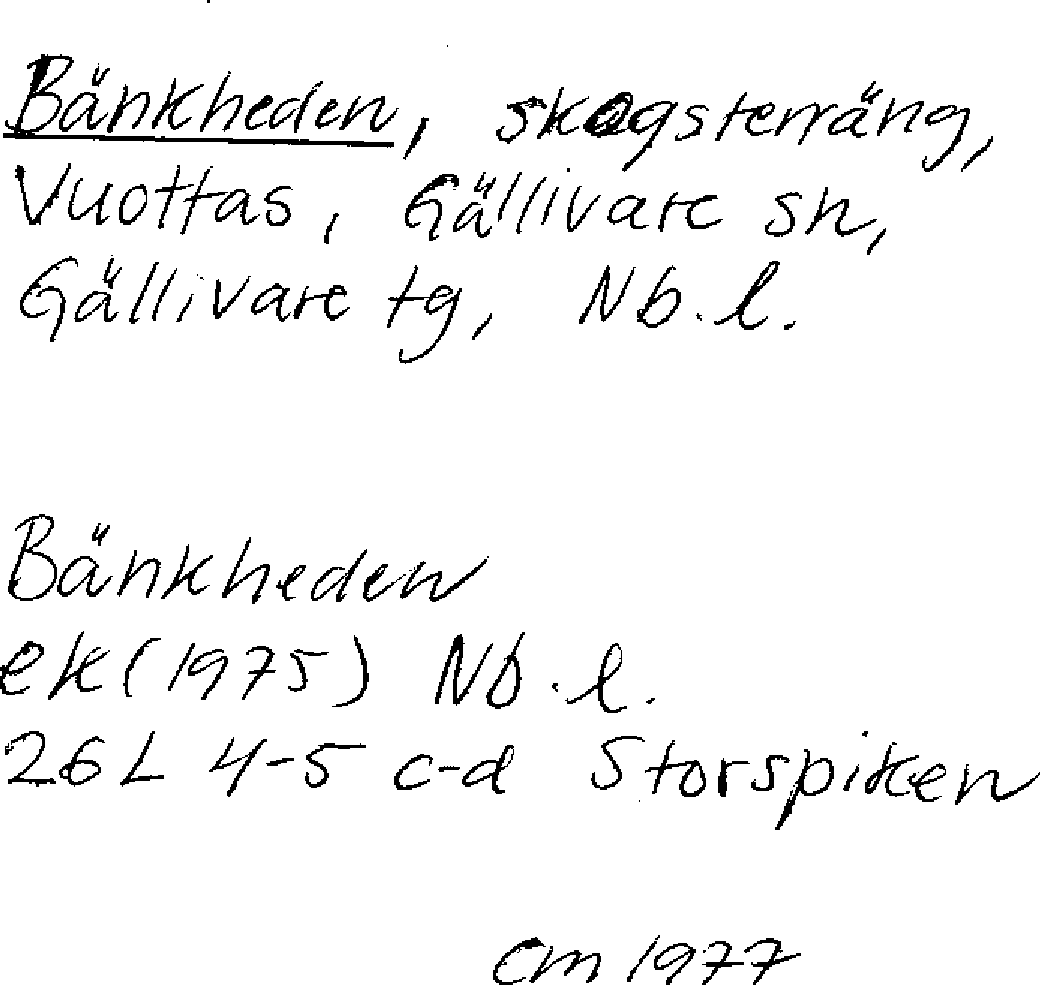 Bänkheden, skogsterräng,
Vuottas, Gällivare sn,
Gällivare tg, Nb.l.
Bänkheden
ek (1975) Nb.l.
26L 4-5 c-d Storspiken
CM 1977